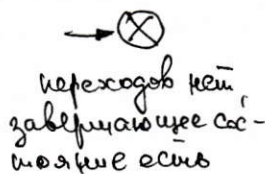 переходов нет
завершающее сос-
тояние есть